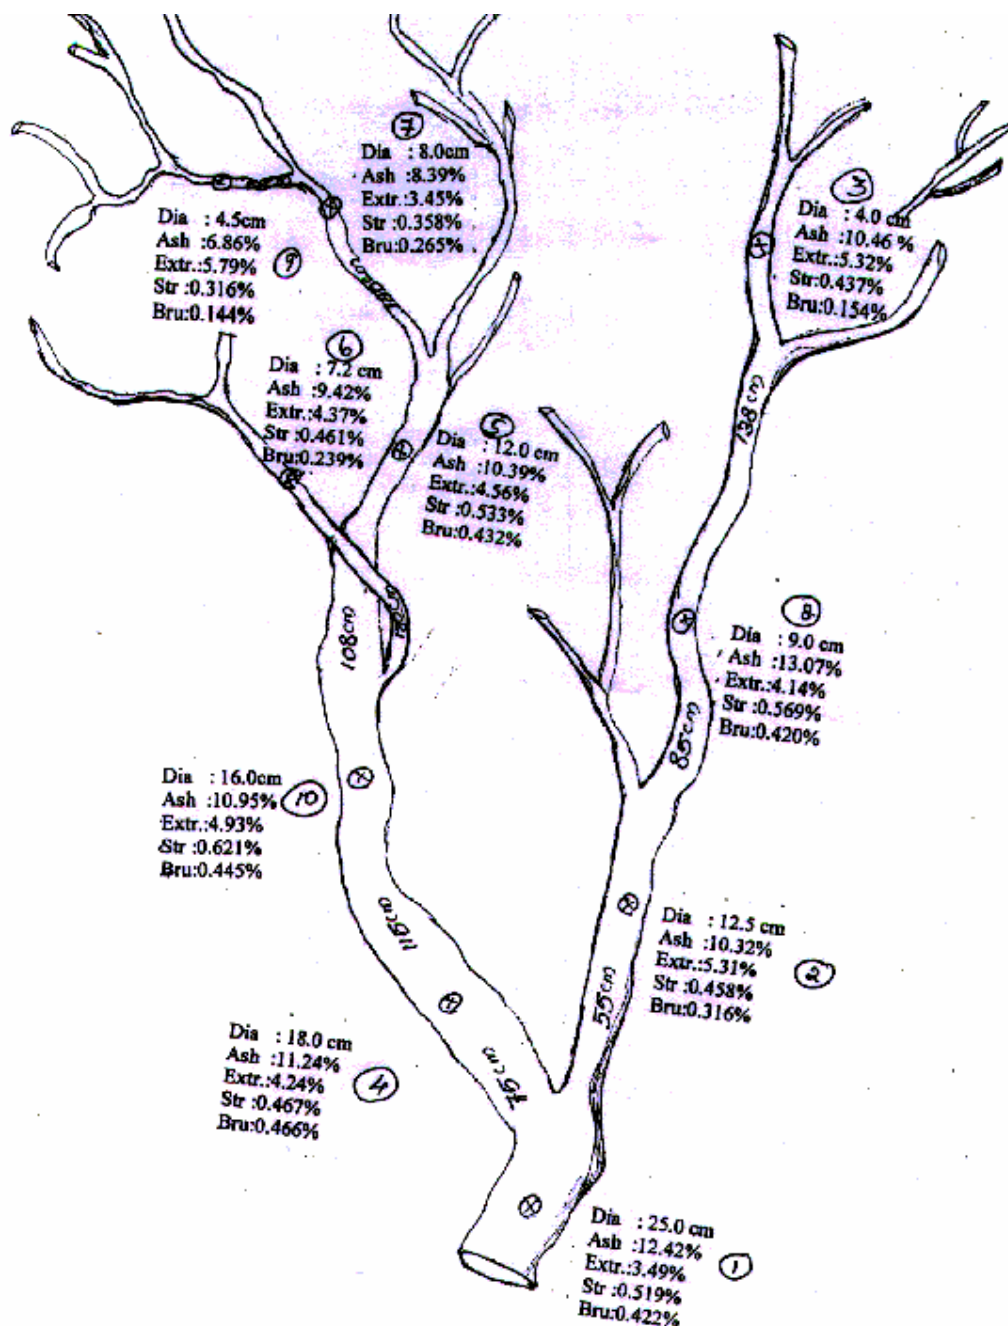 7
Dia : 8.0cm
Ash : 8.39%
Extr.:3.45%
Str :0.358%
Bru:0.265%
3
Dia : 4.0 cm
Ash : 10.46 %
Extr.:5.32%
Str:0.437%
Bru:0.154%
9
Dia : 4.5cm
Ash : 6.86%
Extr.:5.79%
Str :0.316%
Bru:0.144%
6
Dia : 7.2 cm
Ash : 9.42%
Extr.:4.37%
Str :0.461%
Bru:0.239%
5
Dia : 12.0 cm
Ash :10.39%
Extr.:4.56%
Str :0.533%
Bru:0.432%
138cm
108cm
8
Dia : 9.0 cm
Ash :13.07%
Extr.:4.14%
Str :0.569%
Bru:0.420%
85cm
Dia : 16.0cm
Ash :10.95%
Extr.:4.93%
Str :0.621%
Bru:0.445%
10
115cm
Dia : 12.5 cm
Ash :10.32%
Extr.:5.31%
Str :0.458%
Bru:0.316%
2
55cm
Dia : 18.0 cm
Ash :11.24%
Extr.:4.24%
Str :0.467%
Bru:0.466%
4
75cm
Dia : 25.0 cm
Ash :12.42%
Extr.:3.49%
Str :0.519%
Bru:0.422%
1